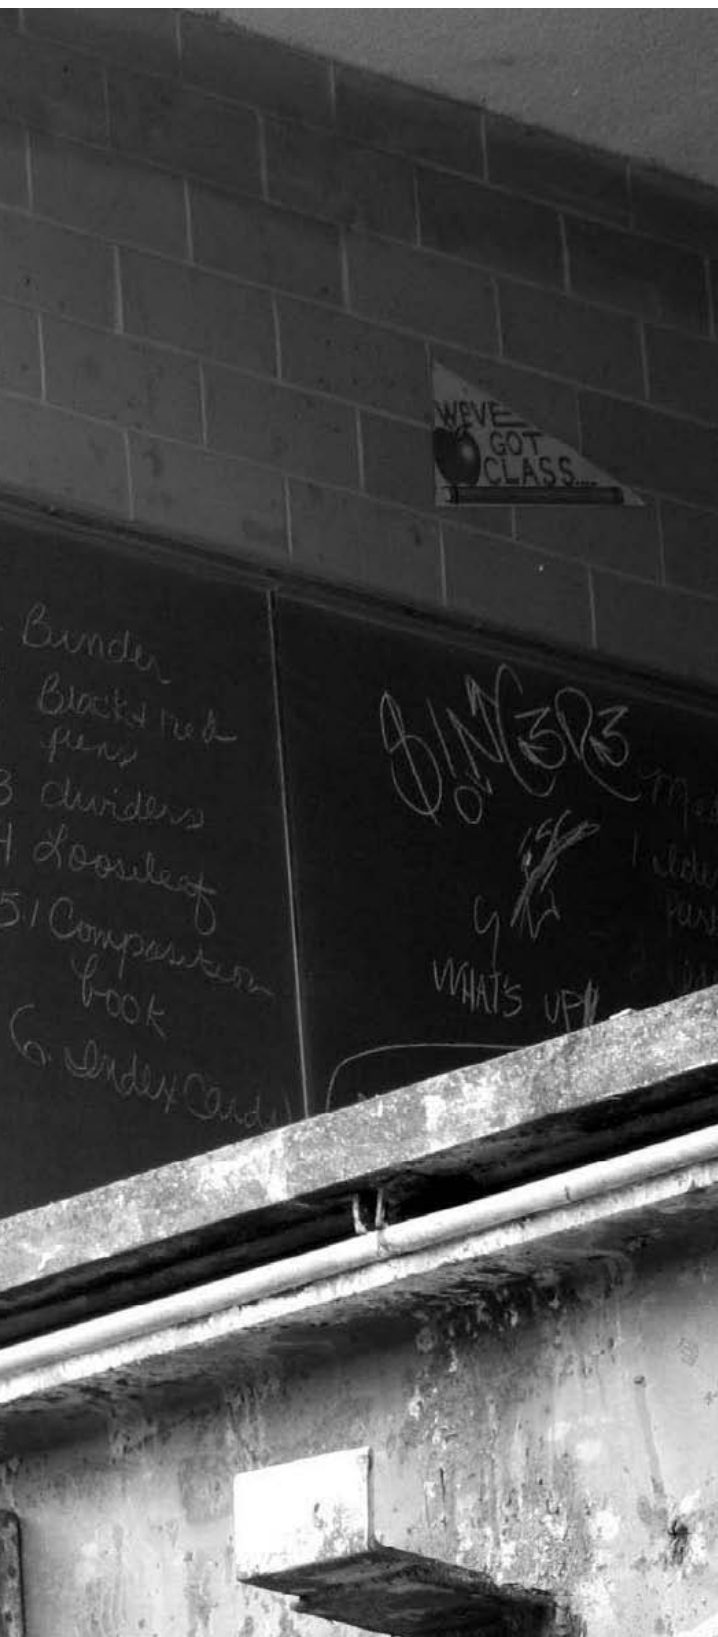 WE'VE
GOT
CLASS....
Binder
Black & red
pens
3 dividers
4 Looseleaf
5. 1 Composition
book
6. Index Cards
$INC3R3
WHAT'S UP!!
1